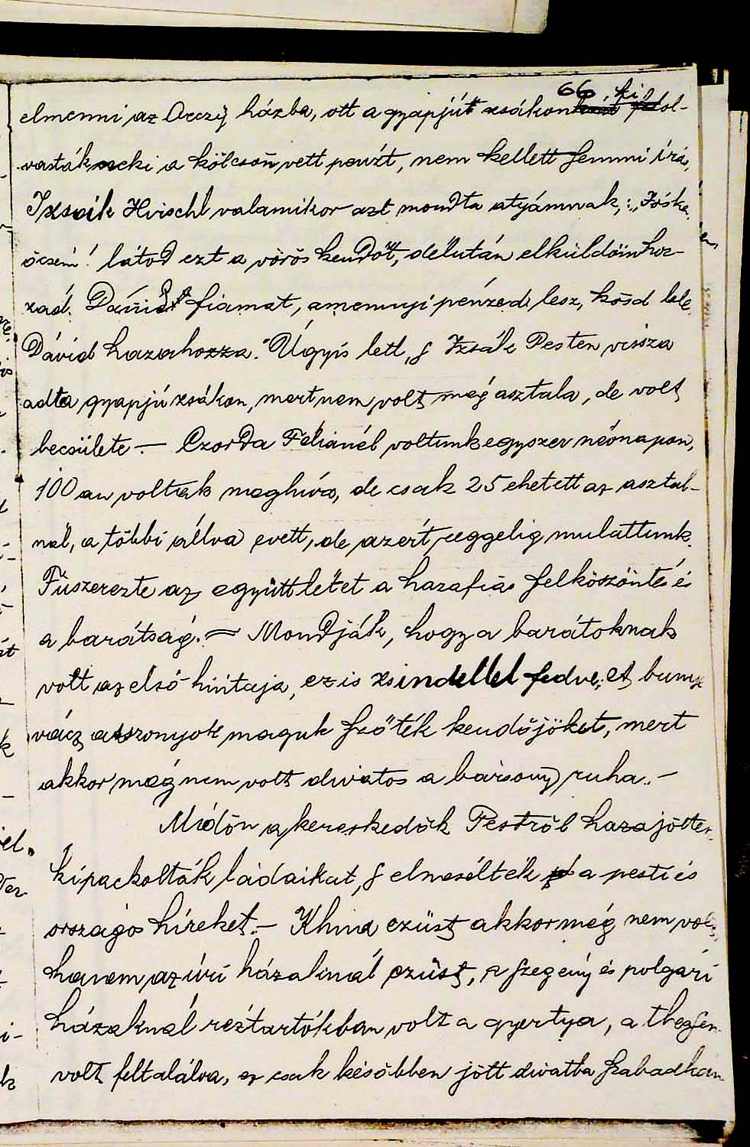 66.
elmenni az Orczy házba, ott a gyapjút zsákon ki ol-
vasták neki a kölcsön vett pénzt, nem kellett semmi írás,
Izsák Hirschl valamikor azt mondta atyámnak: „Jóske
öcsém! látod ezt a vörös kendőt, délután elküldöm hoz-
zád Dávid fiamat, amennyi pénzed lesz, kösd bele
Dávid hazahozza." Úgyis lett, s Izsák Pesten vissza
adta gyapjú zsákon, mert nem volt még asztala, de volt
becsülete — Czorda Feliánél voltunk egyszer névnapon,
100 an voltak meghíva, de csak 25 ehetett az asztal-
nál, a többi állva evett, de azért reggelig mulattunk.
Fűszerezte az együttlétet a hazafias felköszöntés és
a barátság. = Mondják, hogy a barátoknak
volt az első hintaja, ez is zsindellel fedve, et bunye
vácz asszonyok maguk szőtték kendőjöket, mert
akkor még nem volt divatos a bársony ruha. —
Midőn a kereskedők Pestről haza jöttek
kipackolták ládaikat, s elmesélték a pesti és
országos híreket. — Khina ezüst akkor még nem volt,
hanem az úri házaknál ezüst, a szegény és polgári
házaknál réztartókban volt a gyertya, a
volt feltalálva, ez csak későbben jött divatba Szabadkán